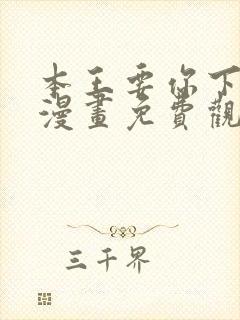 本王要你下
漫畫免費觀
三千界